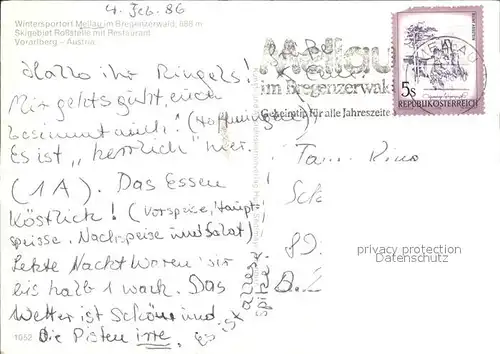 4. Feb. 86
Wintersportort Mellau im Bregenzerwald, 688 m
Skigebiet Roßstelle mit Restaurant
Vorarlberg – Austria
Hallo ihr Ringels!
Mir gehts gut, euch
bestimmt auch! (Hoffnungen)
Es ist „herrlich" hier.
(1A). Das Essen
Köstlich! (Vorspeise, Haupt-
speisse, Nachspeise und Salat)
Letzte Nacht waren wir
bis halb 1 wach. Das
Wetter ist Schön und
die Pisten irre,
es ist alles
spitze.
Mellau
im Bregenzerwald
Geheimtip für alle Jahreszeiten
MELLAU
5s
REPUBLIK ÖSTERREICH
Fam.
89
privacy protection
Datenschutz
1052